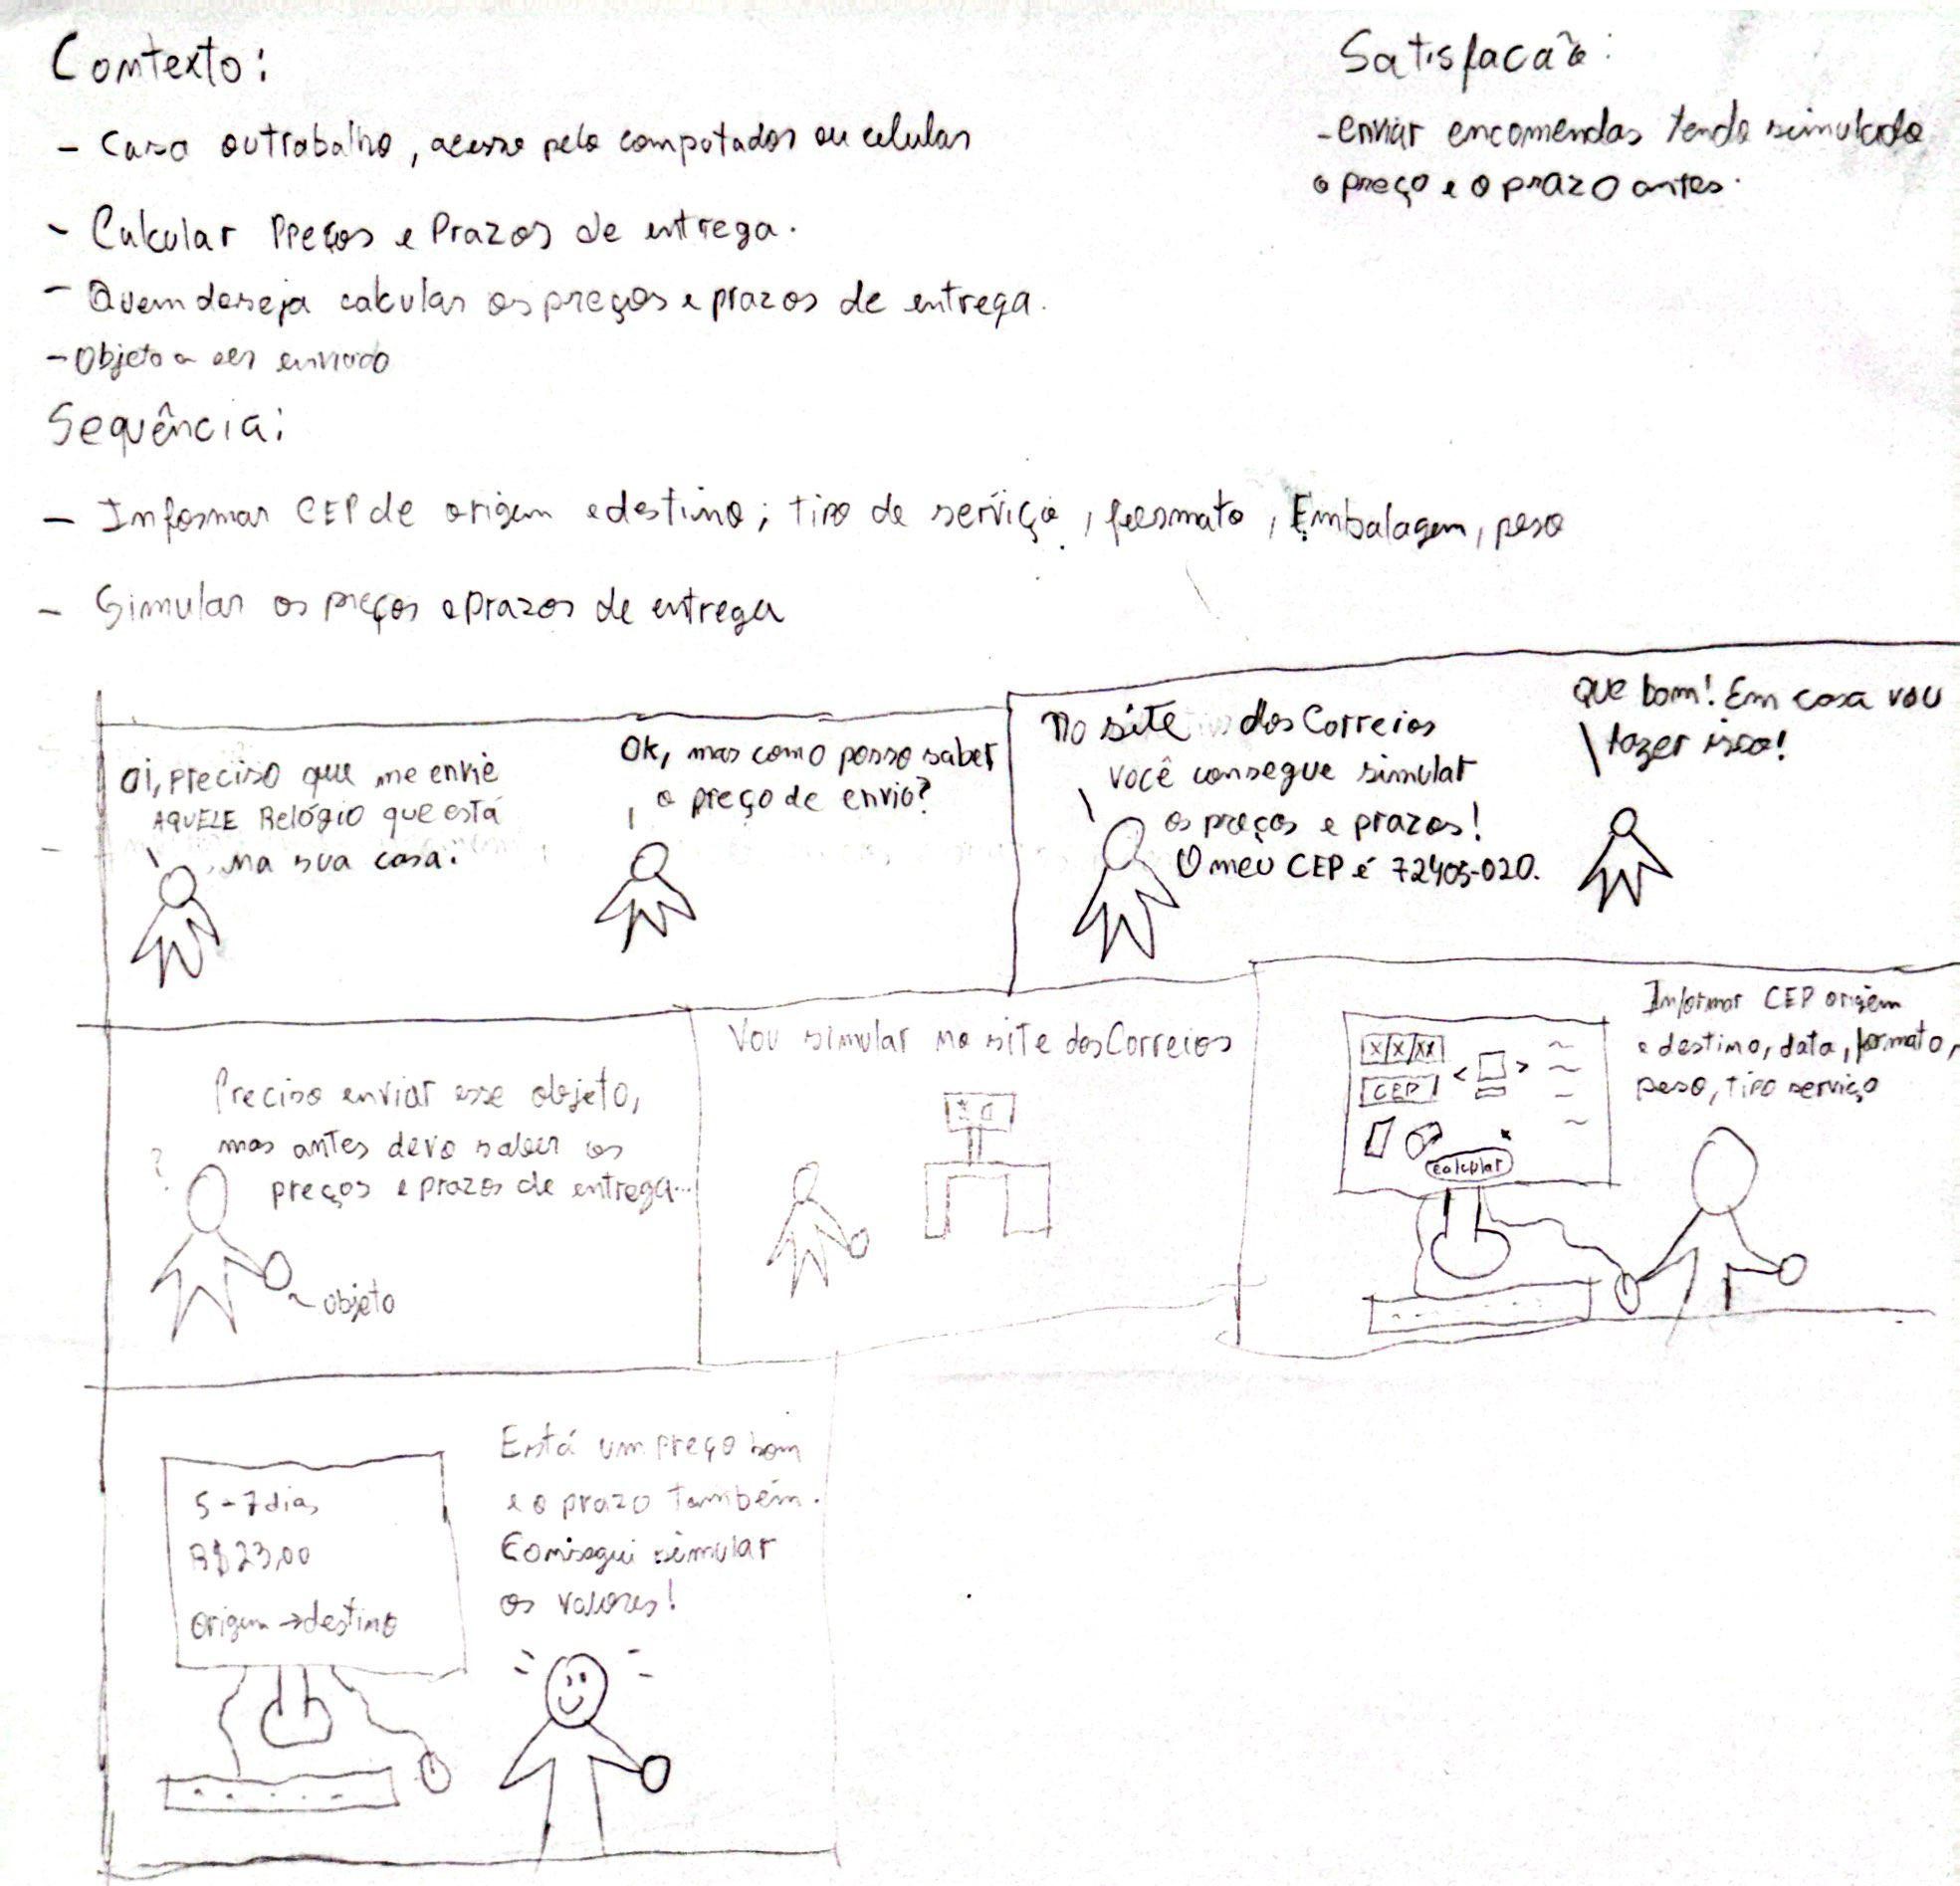 Contexto:
- Casa ou trabalho, acesso pelo computador ou celular
- Calcular Preços e Prazos de entrega.
- Quem deseja calcular os preços e prazos de entrega.
- Objeto a ser enviado
Satisfacão:
- enviar encomendas tendo simulado
o preço e o prazo antes.
Sequência:
- Informar CEP de origem e destino; tipo de serviço, formato, Embalagem, peso
- Simular os preços e prazos de entrega
Oi, preciso que me envie
AQUELE Relógio que está
na sua casa.
OK, mas como posso saber
o preço de envio?
No site dos Correios
você consegue simular
os preços e prazos!
O meu CEP é 72405-020.
que bom! Em casa vou
fazer isso!
Preciso enviar esse objeto,
mas antes devo saber os
preços e prazos de entrega...
?
objeto
Vou simular no site dos Correios
X/X/XX
CEP
< >
calcular
Informar CEP origem
e destino, data, formato,
peso, tipo serviço
5-7 dias
R$23,00
origem → destino
Está um preço bom
e o prazo também.
Consegui simular
os valores!